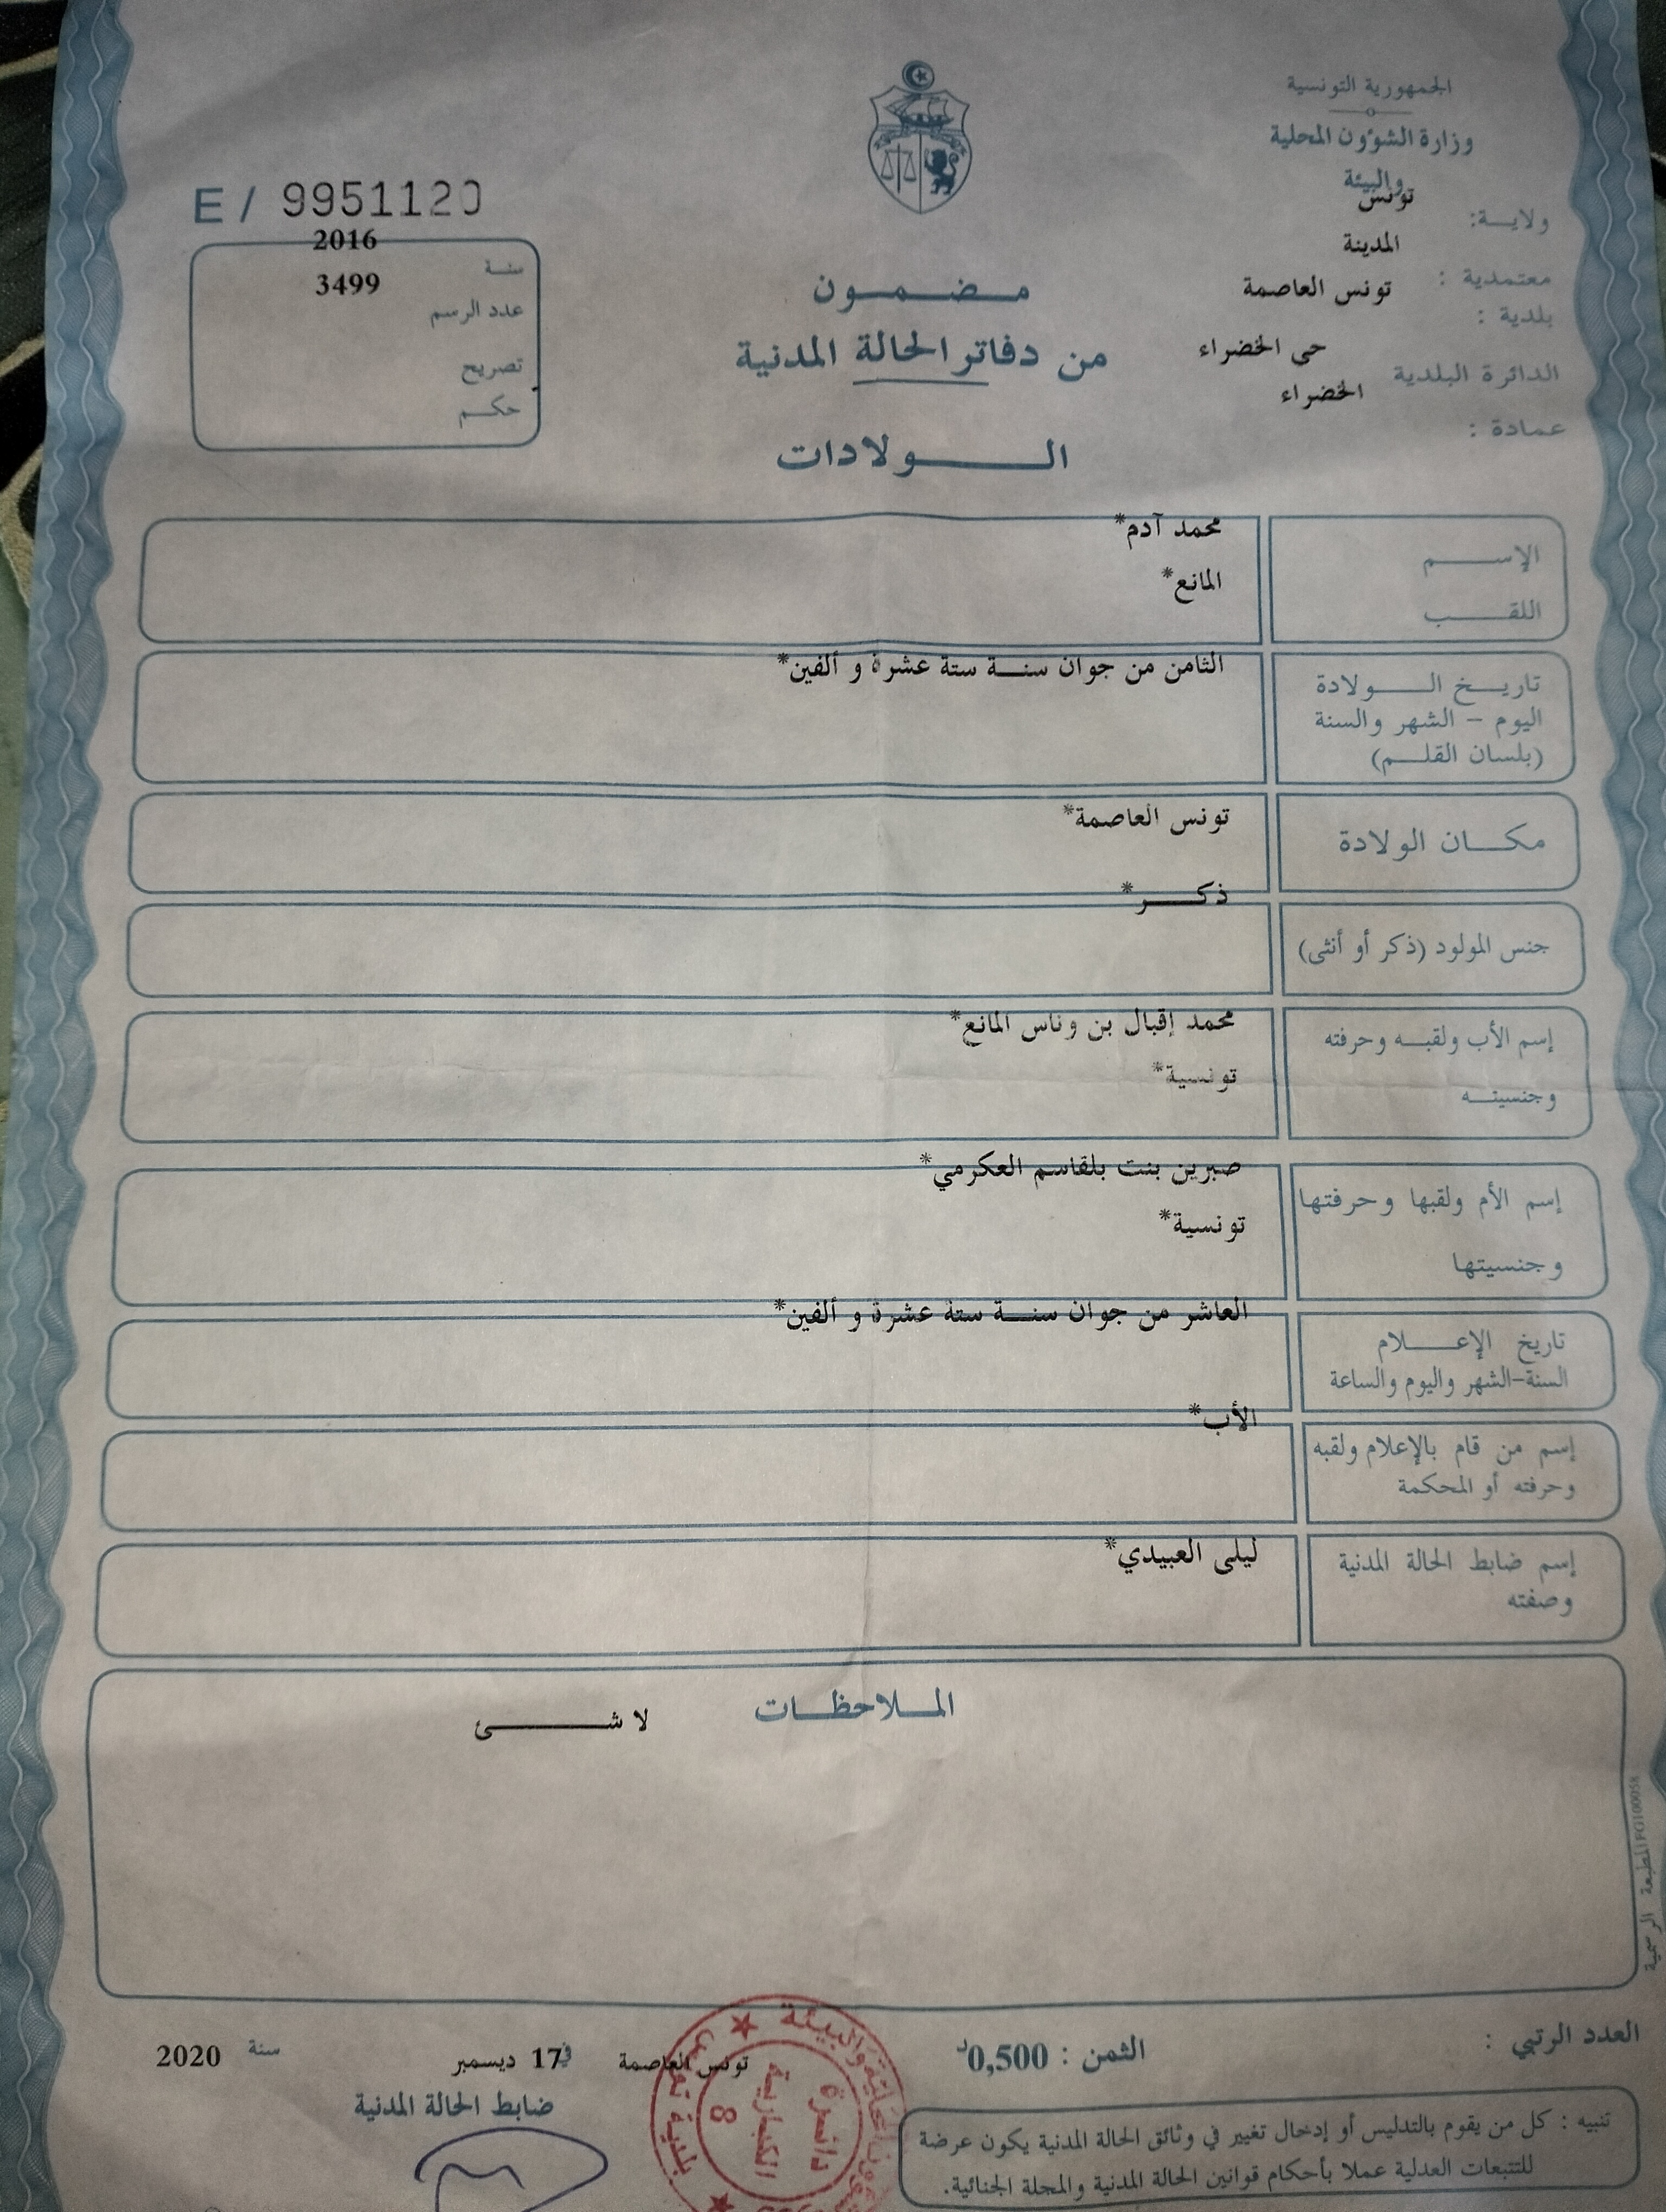 الجمهورية التونسية
وزارة الشؤون المحلية
والبيئة
ولاية: تونس
معتمدية : المدينة
بلدية : تونس العاصمة
الدائرة البلدية حي الخضراء
عمادة : الخضراء
E / 9951120
سنة 2016
عدد الرسم 3499
تصريح
حكم
مضمون
من دفاتر الحالة المدنية
الولادات
الإسم محمد آدم*
اللقب المانع*
تاريخ الولادة الثامن من جوان سنة ستة عشرة و ألفين*
اليوم - الشهر والسنة
(بلسان القلم)
مكان الولادة تونس العاصمة*
جنس المولود (ذكر أو أنثى) ذكر*
إسم الأب ولقبه وحرفته محمد إقبال بن وناس المانع*
وجنسيته تونسية*
إسم الأم ولقبها وحرفتها صبرين بنت بلقاسم العكرمي*
وجنسيتها تونسية*
تاريخ الإعلام العاشر من جوان سنة ستة عشرة و ألفين*
السنة-الشهر واليوم والساعة
إسم من قام بالإعلام ولقبه الأب*
وحرفته أو المحكمة
إسم ضابط الحالة المدنية ليلى العبيدي*
وصفته
الملاحظات
لا شئ
المطبعة الرسمية
العدد الرتبي :
الثمن : 0,500د
تونس العاصمة في 17 ديسمبر سنة 2020
ضابط الحالة المدنية
والبيئة
بلدية تونس
دائرة
الكبارية
8
تنبيه : كل من يقوم بالتدليس أو إدخال تغيير في وثائق الحالة المدنية يكون عرضة
للتتبعات العدلية عملا بأحكام قوانين الحالة المدنية والمجلة الجنائية.